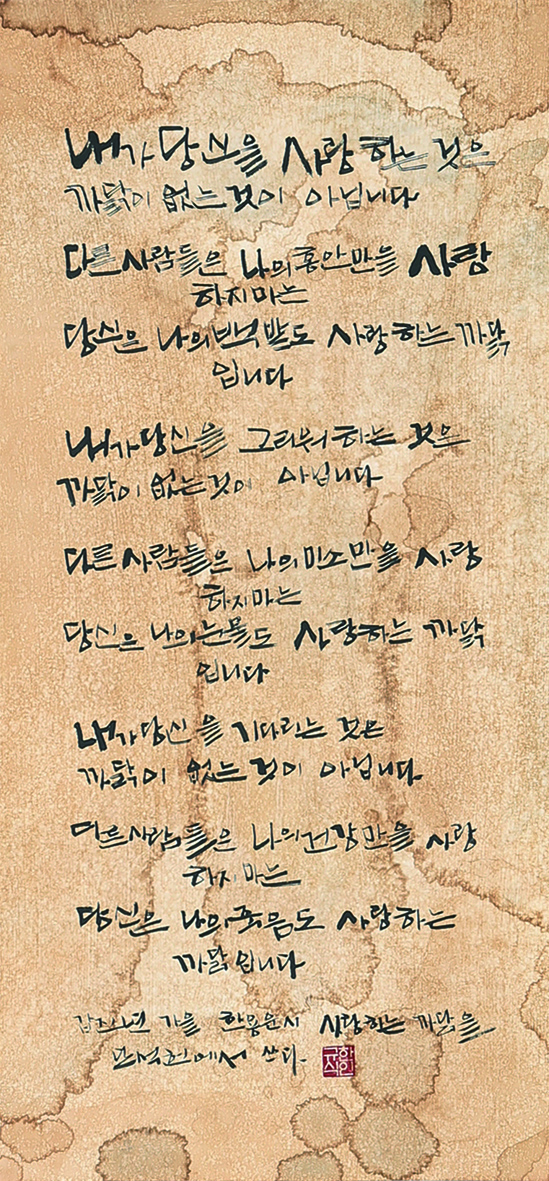 내가 당신을 사랑하는 것은
까닭이 없는것이 아닙니다
다른사람들은 나의홍안만을 사랑
하지마는
당신은 나의백발도 사랑하는까닭
입니다
내가당신을 그리워하는 것은
까닭이 없는것이 아닙니다
다른사람들은 나의미소만을 사랑
하지마는
당신은 나의눈물도 사랑하는 까닭
입니다
내가당신을 기다리는 것은
까닭이 없는것이 아닙니다
다른사람들은 나의건강만을 사랑
하지마는
당신은 나의죽음도 사랑하는
까닭입니다
가을 한용운시 사랑하는 까닭을
에서 쓰다.